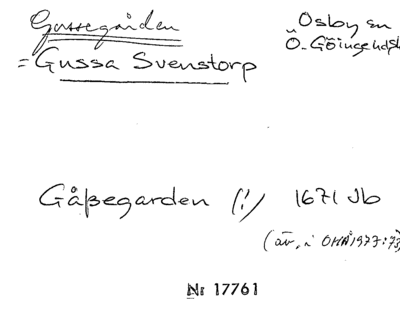 Gussegården
Osby sn
= Gussa Svenstorp
Ö. Göingehd
Gåssegarden (!) 1671 Jb
(äv. i OHÅ 1977:73)
Nr 17761